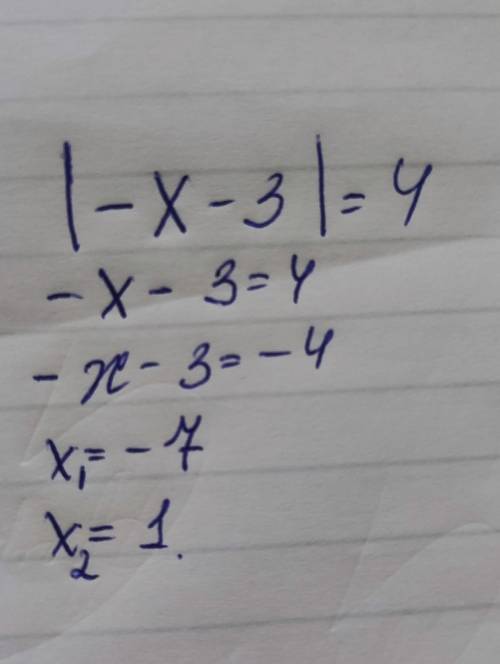 |-x-3|=4
-x-3=4
-x-3=-4
x₁=-7
x₂=1.